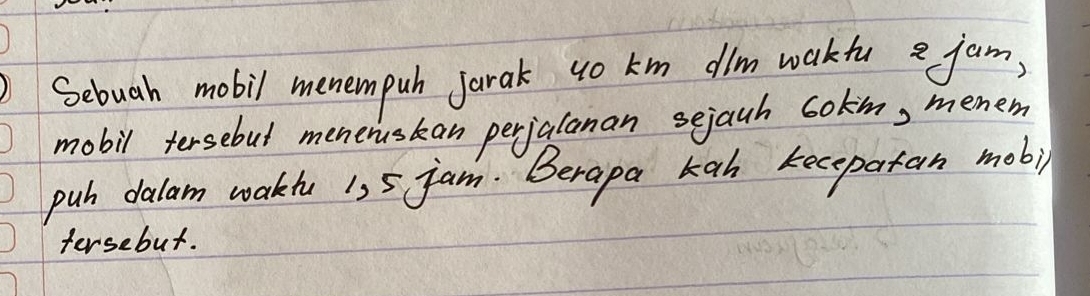 Sebuah mobil menempuh jarak 40 km dlm waktu 2 jam,
mobil tersebut meneruskan perjalanan sejauh 60km, menem
puh dalam waktu 1,5 jam. Berapa kah kecepatan mobil
tersebut.